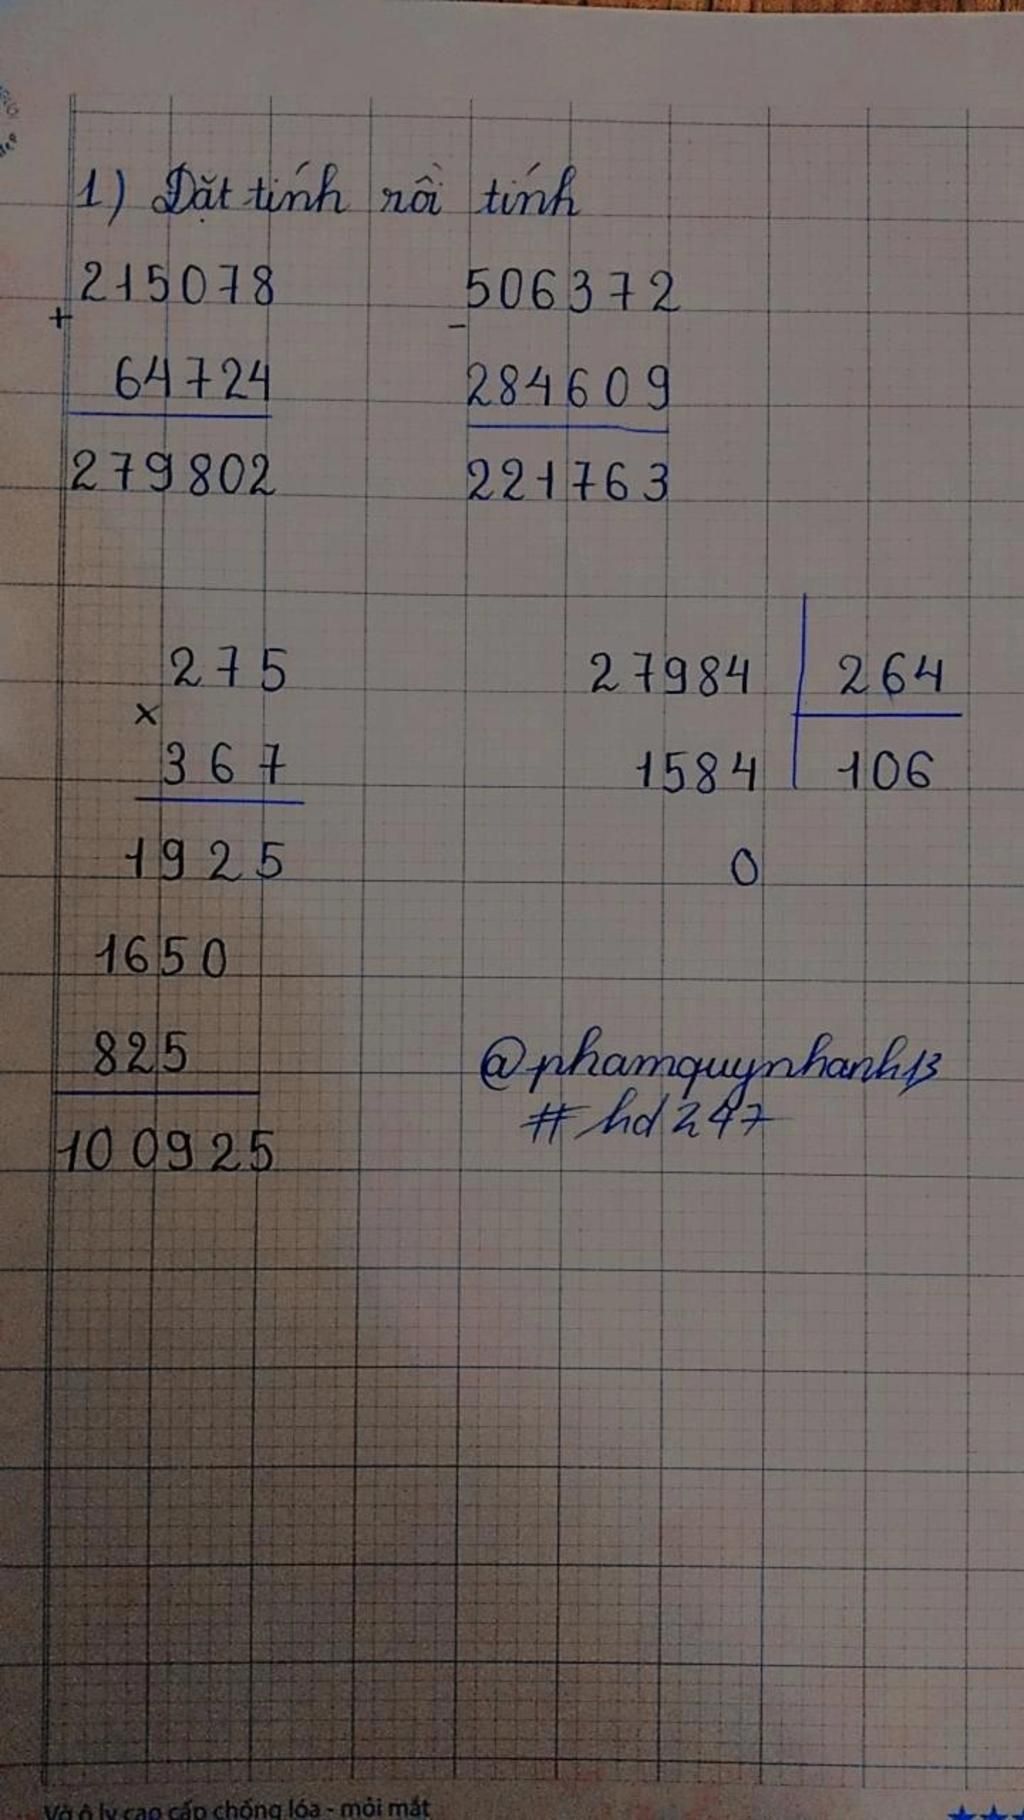 1) Đặt tính rồi tính
215078
+
64724
279802
506372
-
284609
221763
275
x
367
1925
1650
825
100925
27984 264
1584 106
0
@phamquynhanh13
#hd247
Vở ô ly cao cấp chống lóa - mỏi mắt